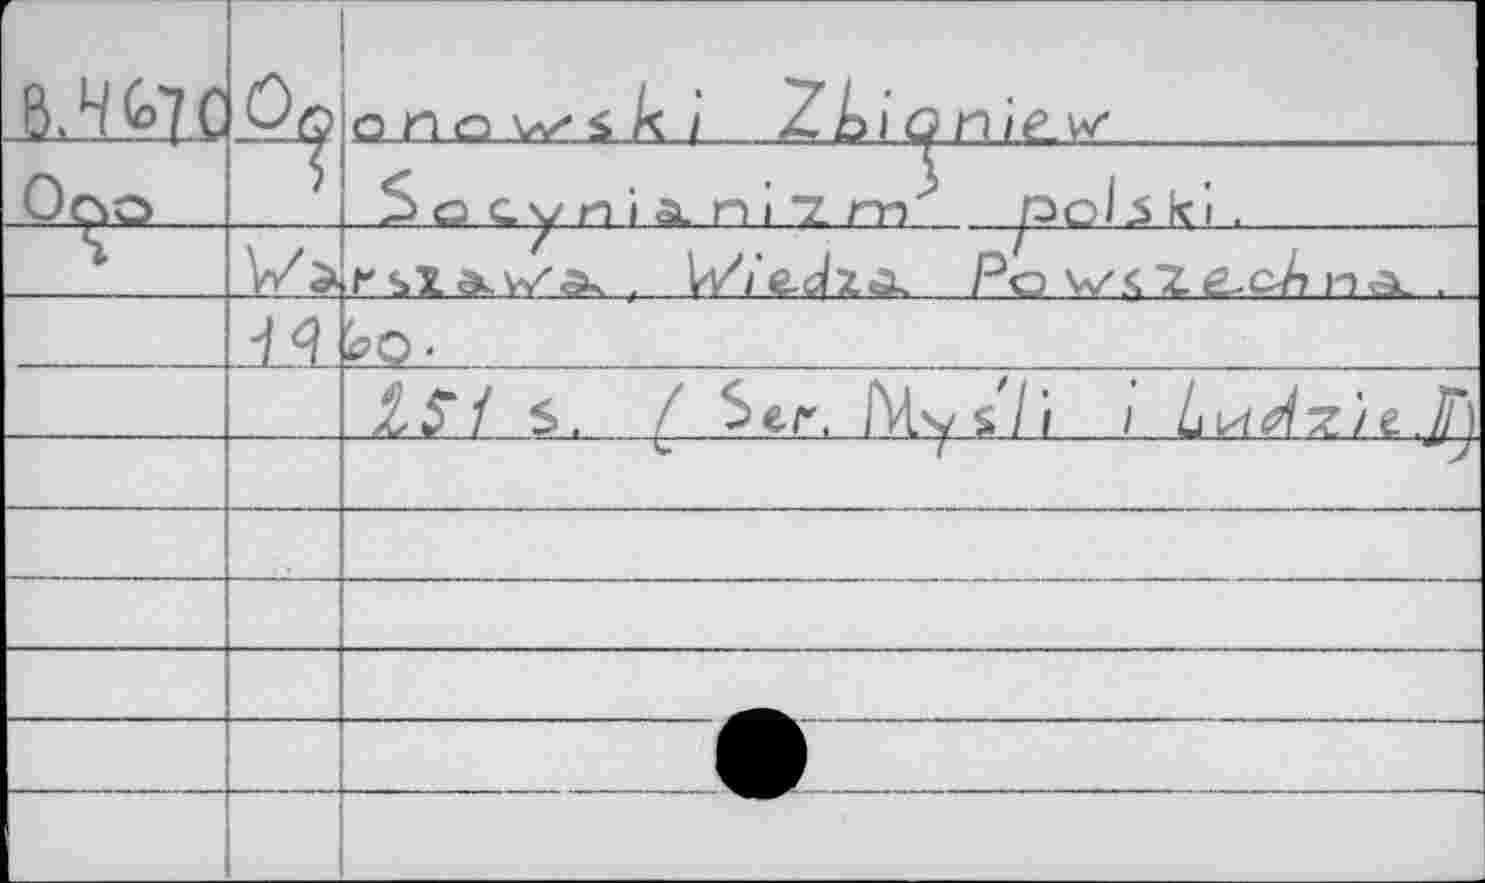 B.4670 Ogonowski Zbigniew
Ogo Socynianizm polski.
Warszawa, Wiedza Powszechna.
1960.
251 s. ( Ser. Myśli i Ludzie.)